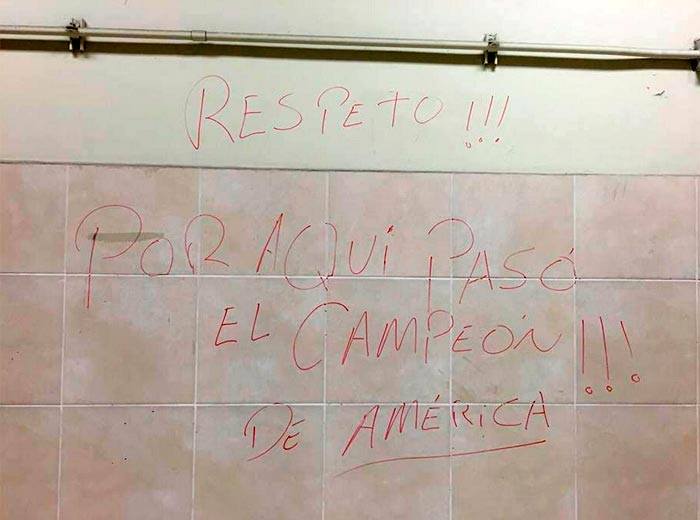 RESPETO !!!
POR AQUi PASÓ
EL CAMPEÓN !!!
DE AMÉRICA